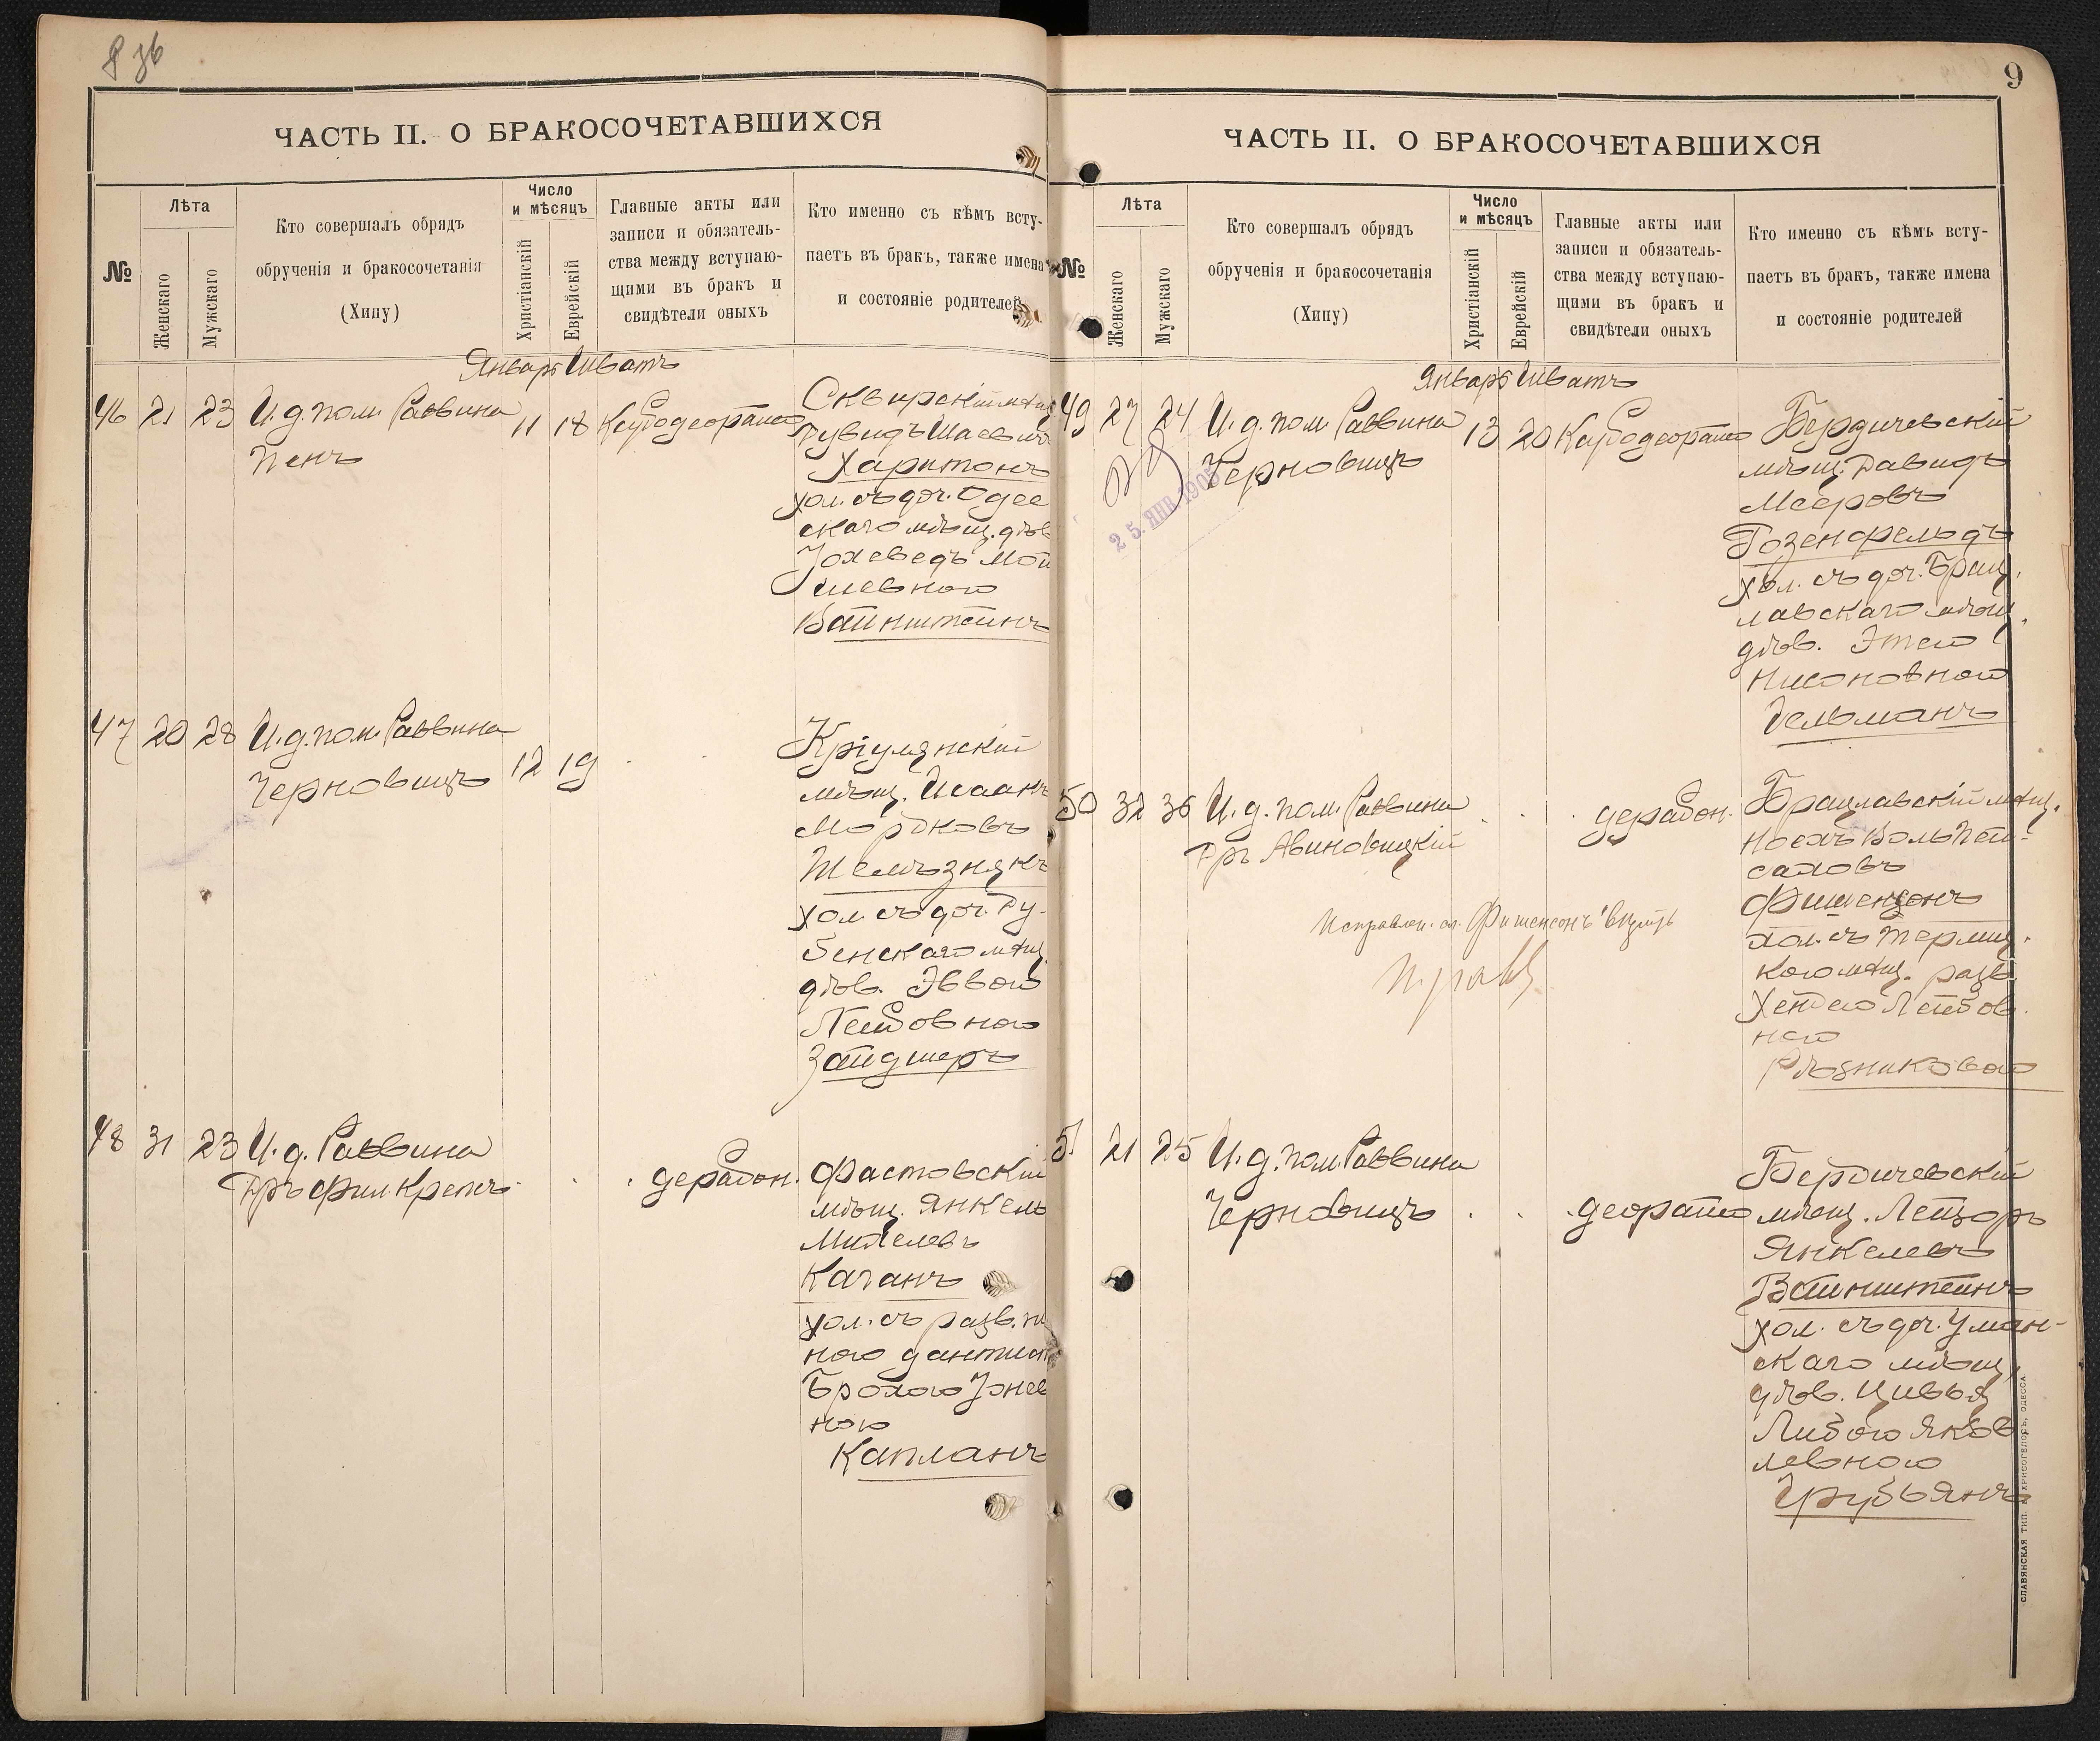 8 об
ЧАСТЬ II. О БРАКОСОЧЕТАВШИХСЯ
№
Лѣта
Женскаго
Мужскаго
Кто совершалъ обрядъ
обрученія и бракосочетанія
(Хипу)
Число
и мѣсяцъ
Христіанскій
Еврейскій
Главные акты или
записи и обязатель-
ства между вступаю-
щими въ бракъ и
свидѣтели оныхъ
Кто именно съ кѣмъ всту-
паетъ въ бракъ, также имена
и состояніе родителей
Январь Шватъ
46 21 23 И. д. пом. Раввина
Пенъ
11 18
Сквирскій мѣщ
Шаевъ
Харитонъ
хол. съ доч. Одес
скаго мѣщ. дѣв
Іохеведъ Мой
шевною
Вайнштейнъ
47 20 28 И. д. пом. Раввина
Черновицъ
12 19
Кріулянскій
мѣщ. Исаакъ
Мордковъ
Желѣзнякъ
хол. съ доч. Ду-
бенскаго мѣщ.
дѣв. Эввою
Лейбовною
Зайдшеръ
48 31 23 И. д. Раввина
Д-ръ Фил. Крепсъ
дерабон.
Фастовскій
мѣщ. Янкель
Михелевъ
Каганъ
хол. съ разв. ж
ною дантист
Брохою
ною
Капланъ
9
ЧАСТЬ II. О БРАКОСОЧЕТАВШИХСЯ
№
Лѣта
Женскаго
Мужскаго
Кто совершалъ обрядъ
обрученія и бракосочетанія
(Хипу)
Число
и мѣсяцъ
Христіанскій
Еврейскій
Главные акты или
записи и обязатель-
ства между вступаю-
щими въ бракъ и
свидѣтели оныхъ
Кто именно съ кѣмъ всту-
паетъ въ бракъ, также имена
и состояніе родителей
Январь Шватъ
49 27 24 И. д. пом. Раввина
Черновицъ
25. ЯНВ. 1905
13 20
Бердичевскій
мѣщ. Давидъ
Мееровъ
Розенфельдъ
хол. съ доч. Брац.
лавскаго мѣщ.
дѣв. Этею
Нисоновною
Гельманъ
50 32 36 И. д. пом. Раввина
Д-ръ Авиновицкій
дерабон.
Брацлавскій мѣщ.
Ноехъ Вольъ Пей-
саховъ
Фишензонъ
хол. съ
мѣщ. разв.
Хенею Лейбов.
ною
Рѣзниковою
Исправлен. сл. Фишензонъ
51 21 25 И. д. пом. Раввина
Черновицъ
Бердичевскій
мѣщ. Лейзоръ
Янкелевъ
Вайнштейнъ
хол. съ доч. Уман-
скаго мѣщ.
дѣв. Цивья
Либою Яков
левною
Грубьянъ
СЛАВЯНСКАЯ ТИП. Н. ХРИСОГЕЛОСЪ, ОДЕССА